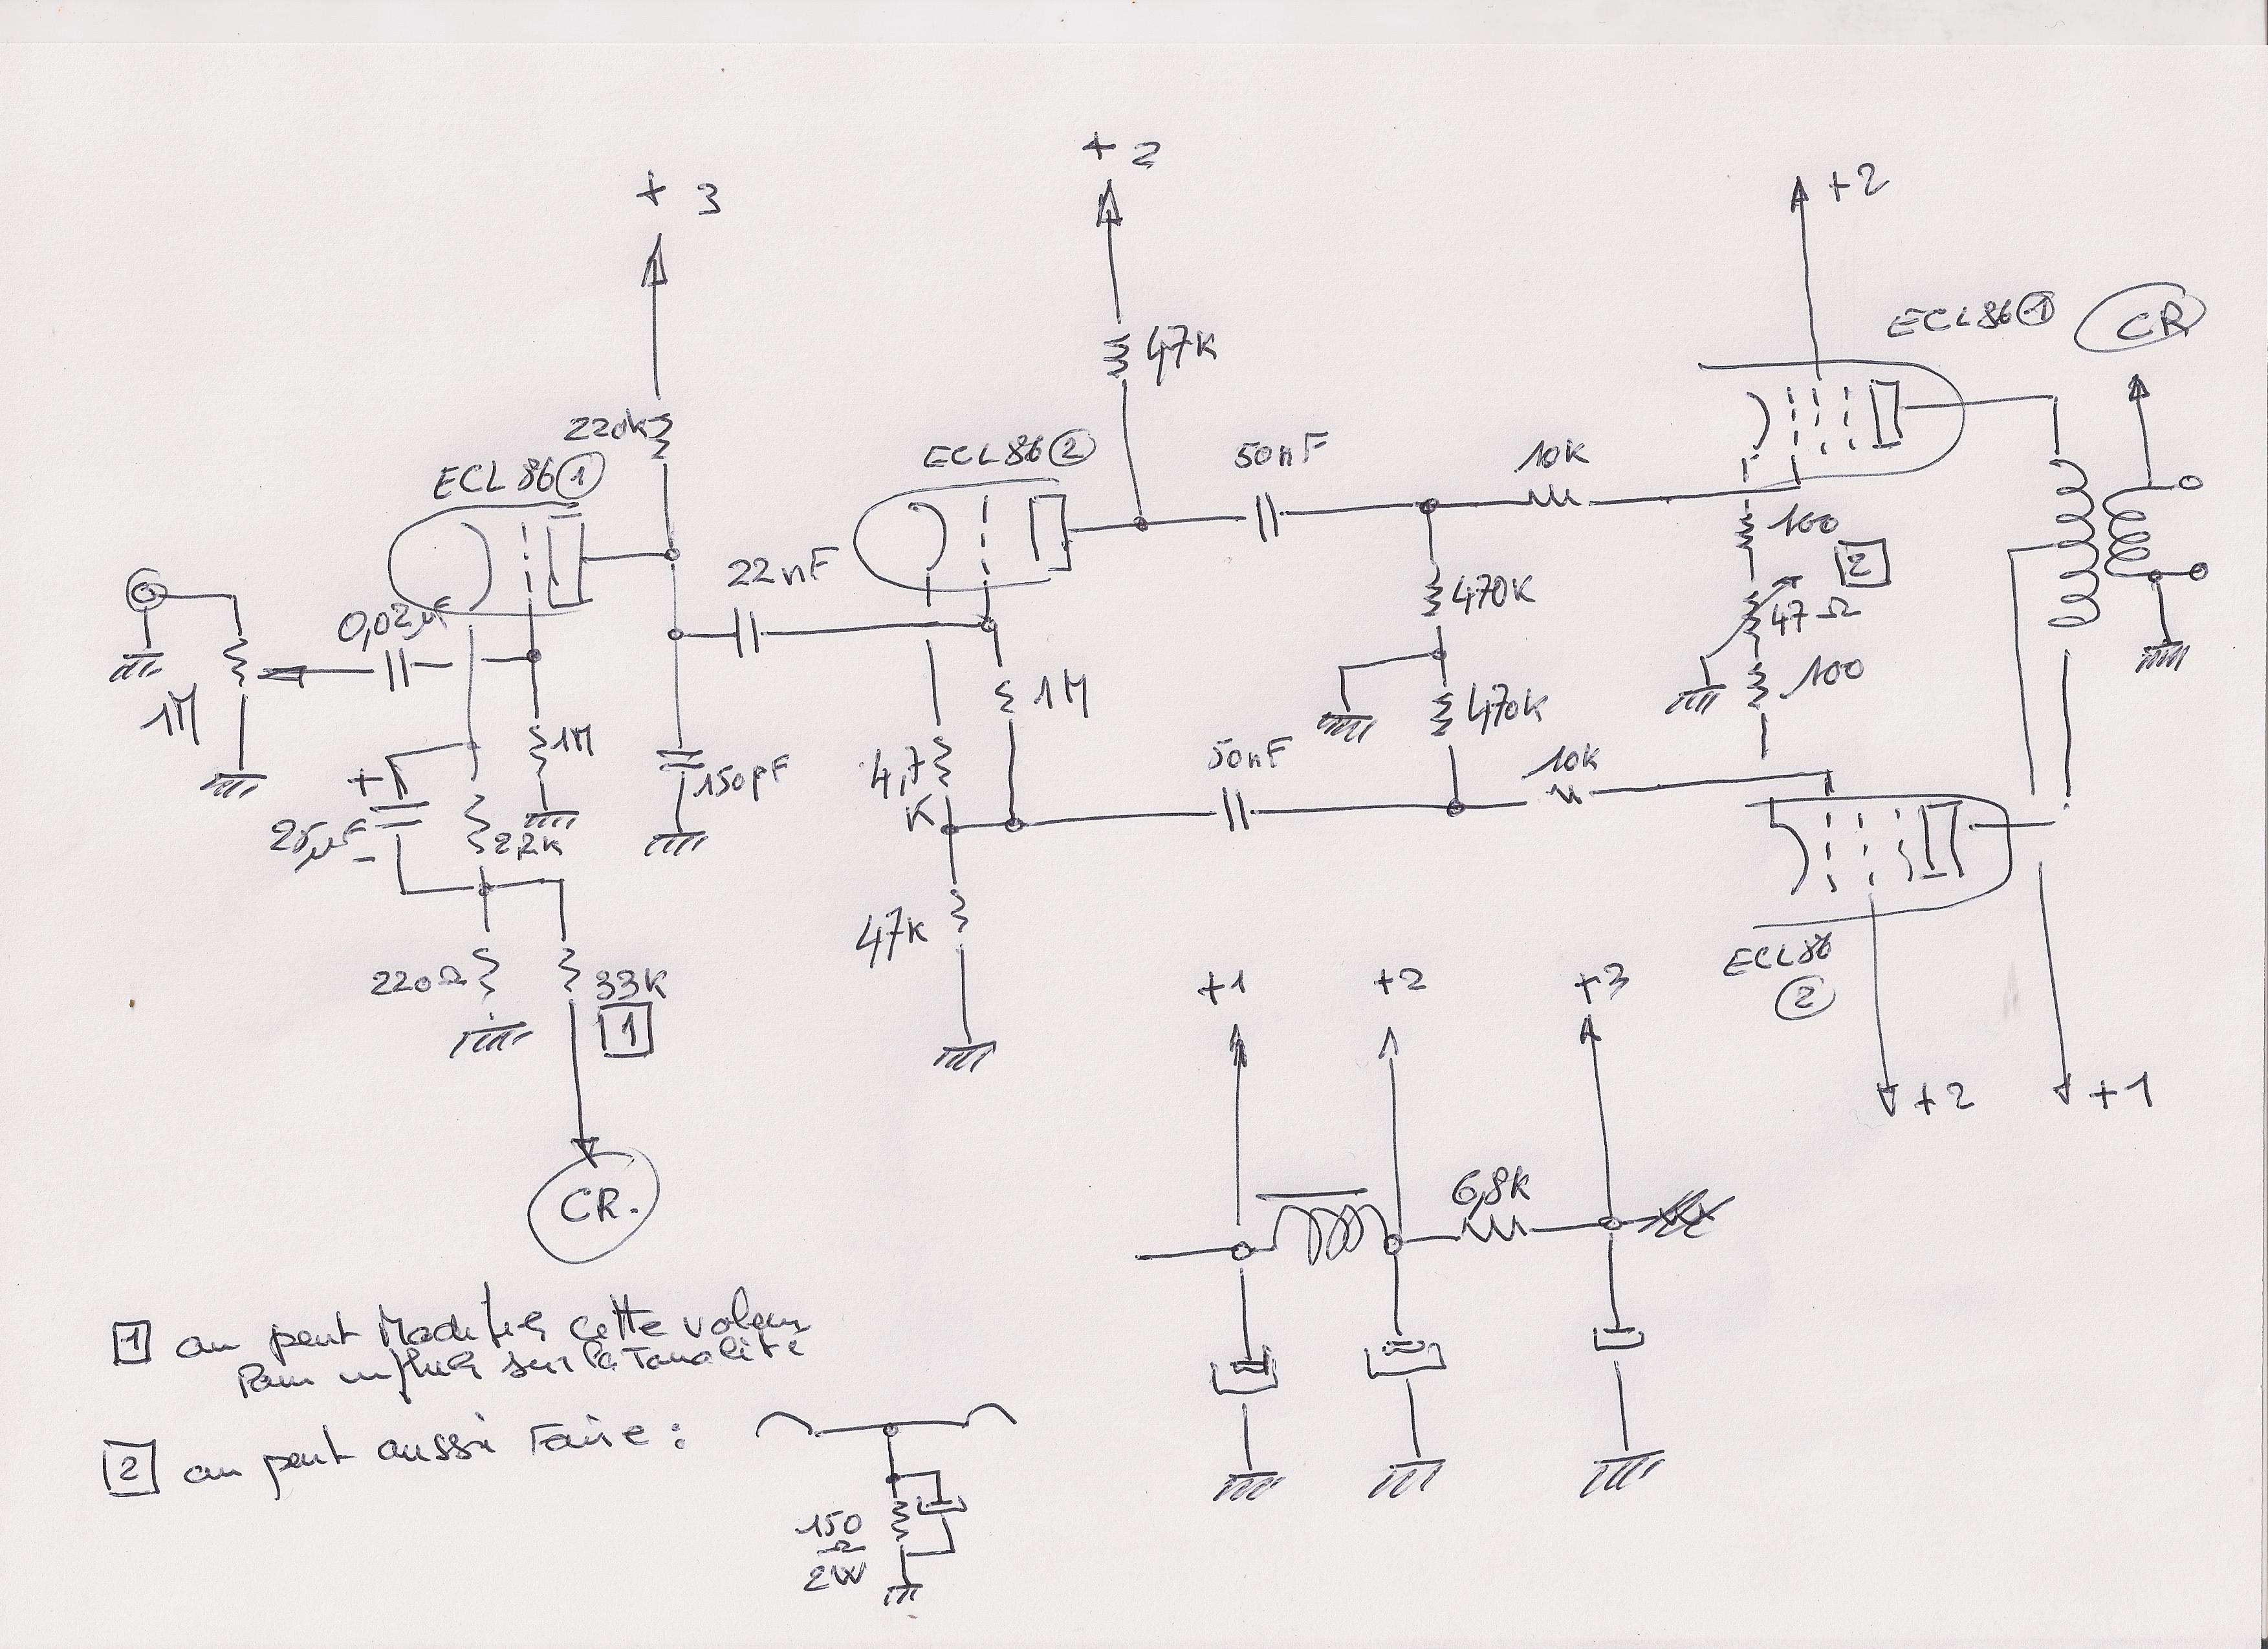 + 3
+ 2
+2
220k
47K
ECL86 ①
ECL86 ②
50nF
10K
ECL86 ①
CR
0,02µF
22nF
1M
1M
150pF
1M
4,7
K
470K
470K
100
2
47Ω
100
+
25µF
-
2,2K
50nF
10K
220Ω
33K
1
47K
ECL86
②
+1
+2
+3
+2
+1
CR.
6,8K
1 on peut Modifier cette valeur
Pour influer sur la Tonalité
2 on peut aussi Faire :
150
Ω
2W